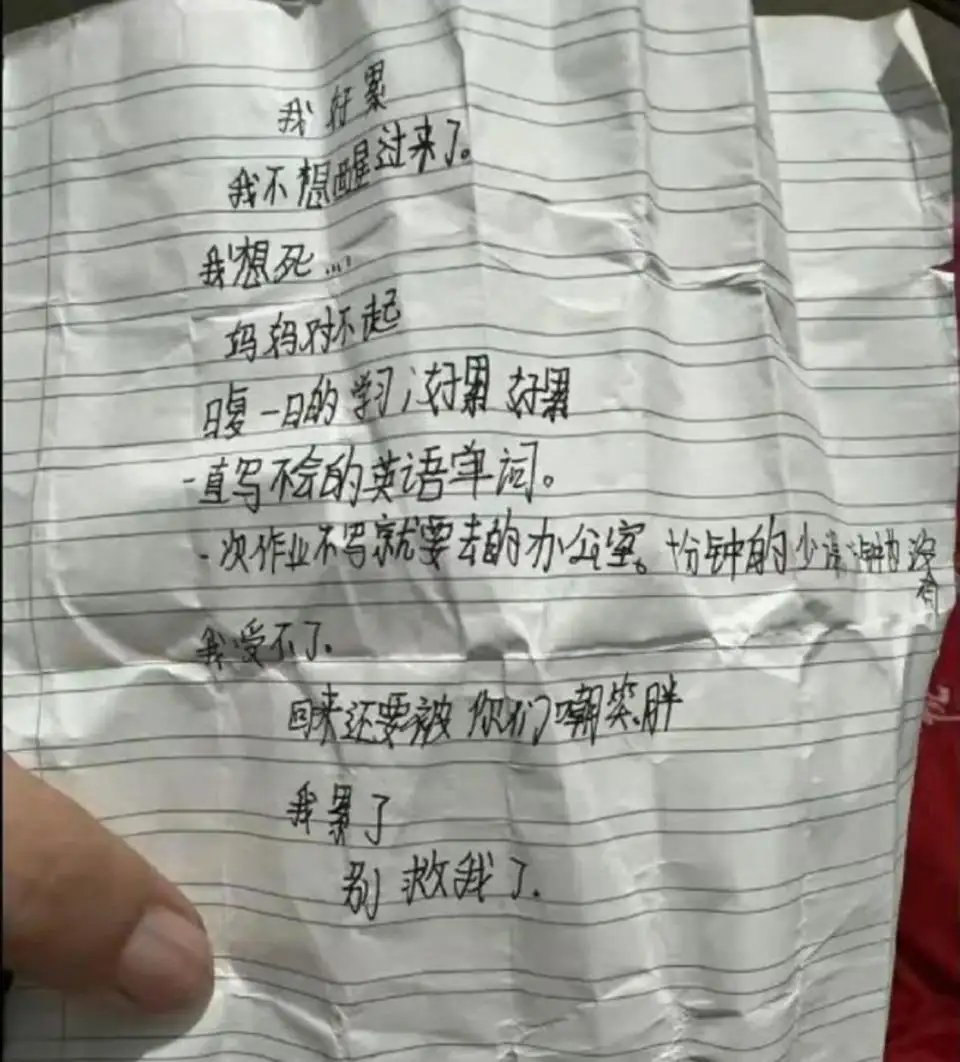 我好累
我不想醒过来了。
我想死...
妈妈对不起
日复一日的学习,好累 好累
一直写不会的英语单词。
一次作业不写就要去的办公室。十分钟的少
钟的没有
我受不了.
回来还要被你们嘲笑胖
我累了
别救我了.